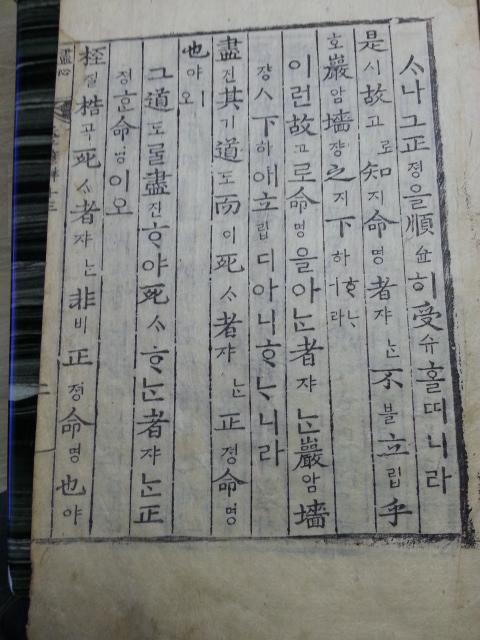 ᄉᆞ나그正졍을順슌히受슈홀띠니라
是시故고로知지命명者쟈ᄂᆞᆫ不블立립乎
호巖암墻쟝之지下하ᄒᆞᄂᆞ니라
이런故고로命명을아ᄂᆞᆫ者쟈ᄂᆞᆫ巖암墻
쟝ㅅ下하애立립디아니ᄒᆞᄂᆞ니라
盡진其기道도而이死ᄉᆞ者쟈ᄂᆞᆫ正졍命명
也야ㅣ오
그道도ᄅᆞᆯ盡진ᄒᆞ야死ᄉᆞᄒᆞᄂᆞᆫ者쟈ᄂᆞᆫ正
졍ᄒᆞᆫ命명이오
桎질梏곡死ᄉᆞ者쟈ᄂᆞᆫ非비正졍命명也야
盡心